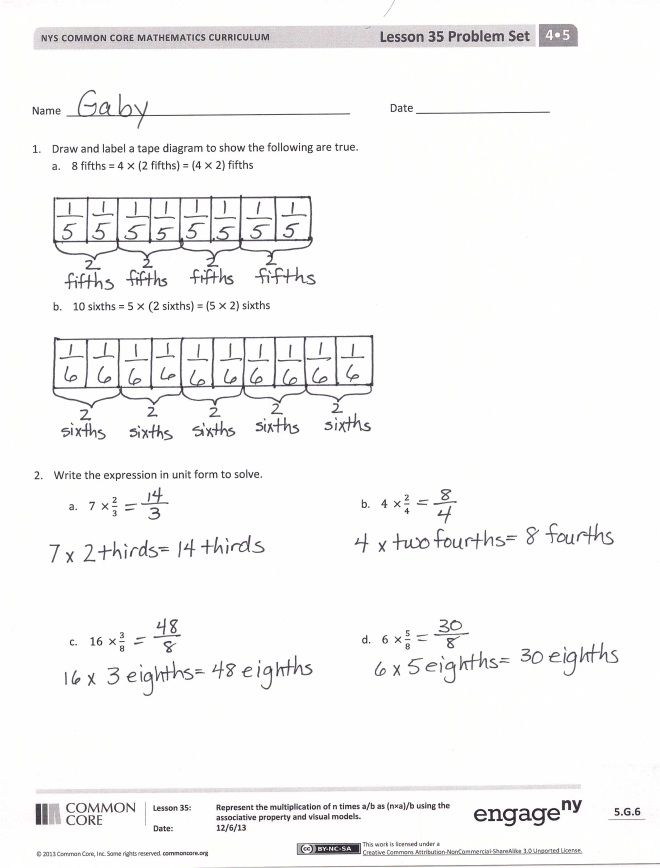 NYS COMMON CORE MATHEMATICS CURRICULUM Lesson 35 Problem Set 4•5
Name Gaby Date
1. Draw and label a tape diagram to show the following are true.
a. 8 fifths = 4 × (2 fifths) = (4 × 2) fifths
1/5 1/5 1/5 1/5 1/5 1/5 1/5 1/5
2 2 2 2
fifths fifths fifths fifths
b. 10 sixths = 5 × (2 sixths) = (5 × 2) sixths
1/6 1/6 1/6 1/6 1/6 1/6 1/6 1/6 1/6 1/6
2 2 2 2 2
sixths sixths sixths sixths sixths
2. Write the expression in unit form to solve.
a. 7 × 2/3 = 14/3
7 x 2 thirds = 14 thirds
b. 4 × 2/4 = 8/4
4 x two fourths = 8 fourths
c. 16 × 3/8 = 48/8
16 x 3 eighths = 48 eighths
d. 6 × 5/8 = 30/8
6 x 5 eighths = 30 eighths
COMMON
CORE
Lesson 35: Represent the multiplication of n times a/b as (n×a)/b using the
associative property and visual models.
Date: 12/6/13
engageny
5.G.6
© 2013 Common Core, Inc. Some rights reserved. commoncore.org
cc BY-NC-SA
This work is licensed under a
Creative Commons Attribution-NonCommercial-ShareAlike 3.0 Unported License.